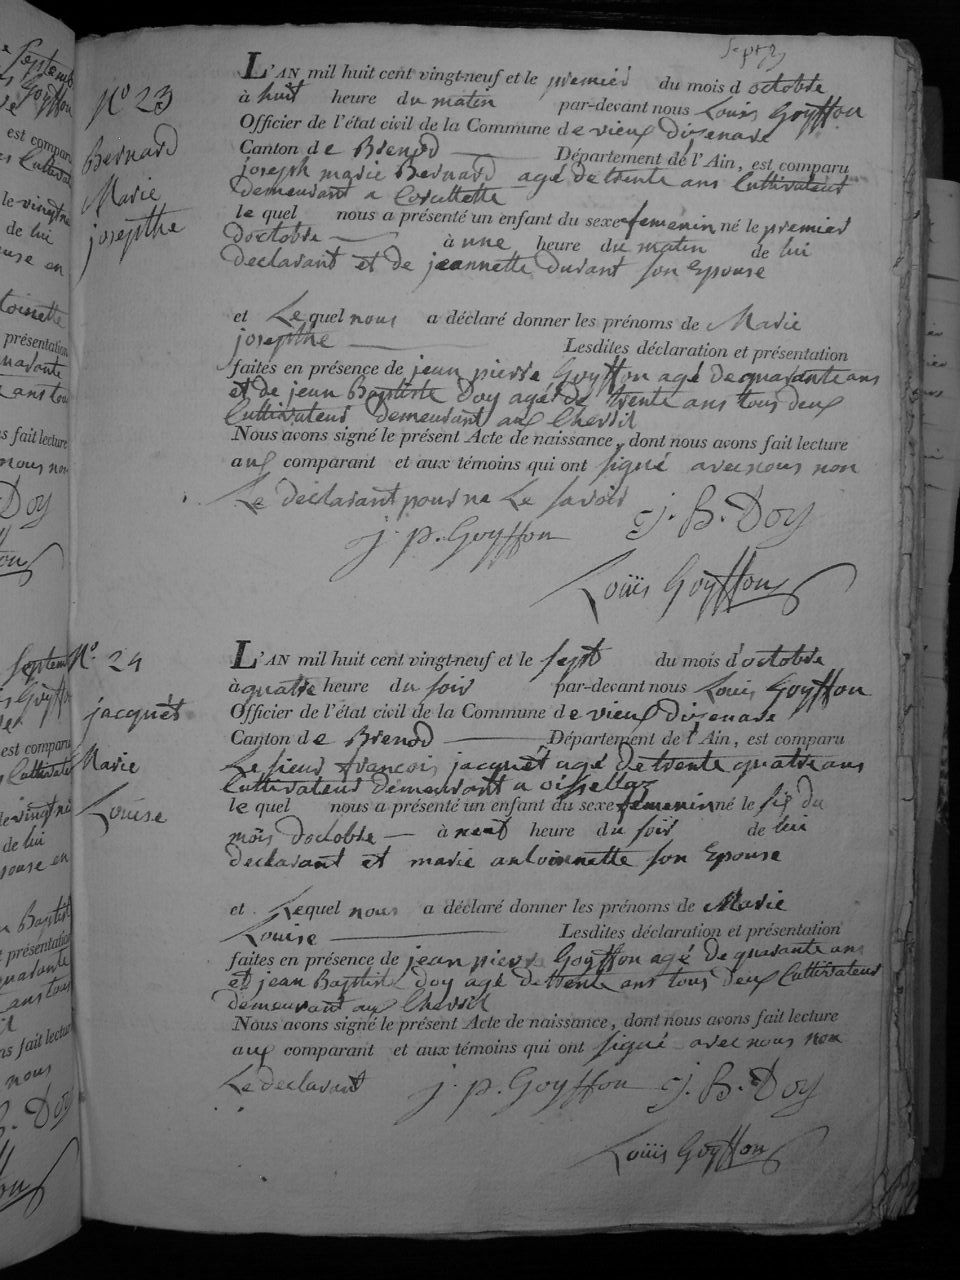 N.o 23
Bernard
Marie
josepthe
L'AN mil huit cent vingt-neuf et le premier du mois d octobre
à huit heure du matin par-devant nous Louis Goyffon
Officier de l'état civil de la Commune de vieux disenave
Canton de Brenod Département de l'Ain, est comparu
joseph marie Bernard agé de trente ans Cultivateur
demeurant a
le quel nous a présenté un enfant du sexe femenin né le premier
doctobre à une heure du matin de lui
declarant et de jeannette durant son Epouse
et Lequel nous a déclaré donner les prénoms de Marie
josepthe Lesdites déclaration et présentation
faites en présence de jean pierre Goyffon agé de quarante ans
et de jean Baptiste Doy agé de trente ans tous deux
Cultivateur demeurant aux
Nous avons signé le présent Acte de naissance, dont nous avons fait lecture
aux comparant et aux témoins qui ont signé avec nous non
Le déclarant pour ne Le savoir
j. p. Goyffon j. B. Doy
Louis Goyffon
N.o 24
jacquet
Marie
Louise
L'AN mil huit cent vingt-neuf et le sept du mois d'octobre
à quatre heure du soir par-devant nous Louis Goyffon
Officier de l'état civil de la Commune de vieux disenave
Canton de Brenod Département de l'Ain, est comparu
Le sieur francois jacquet agé de trente quatre ans
Cultivateur demeurant a
le quel nous a présenté un enfant du sexe femenin né le six du
mois doctobre à neuf heure du soir de lui
declarant et marie antoinnette son Epouse
et Lequel nous a déclaré donner les prénoms de Marie
Louise Lesdites déclaration et présentation
faites en présence de jean pierre Goyffon agé de quarante ans
et jean Baptiste Doy agé de trente ans tous deux Cultivateur
demeurant aux
Nous avons signé le présent Acte de naissance, dont nous avons fait lecture
aux comparant et aux témoins qui ont signé avec nous non
Le declarant j. p. Goyffon j. B. Doy
Louis Goyffon